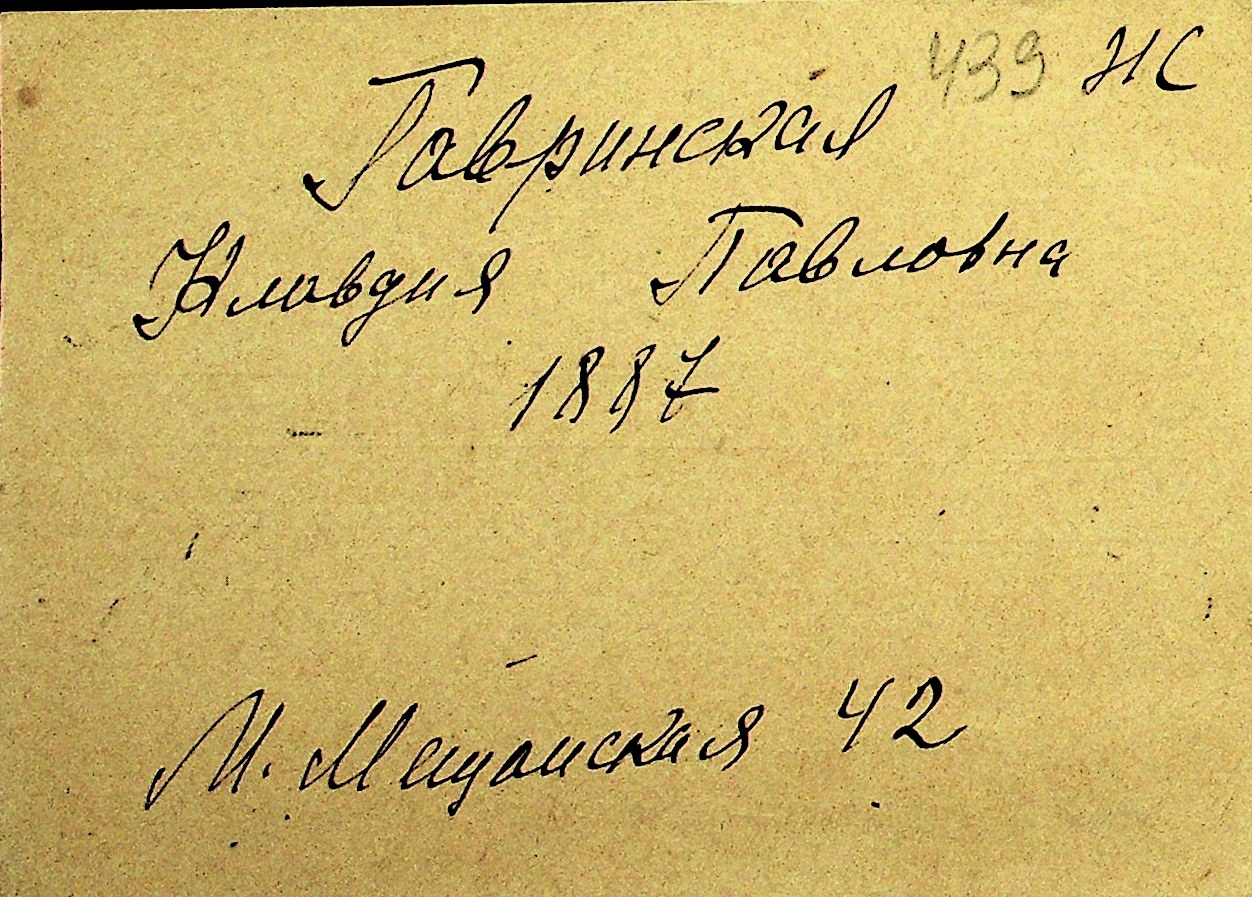 439 НС
Гавринская
Клавдия Павловна
1887
М. Мещанская 42